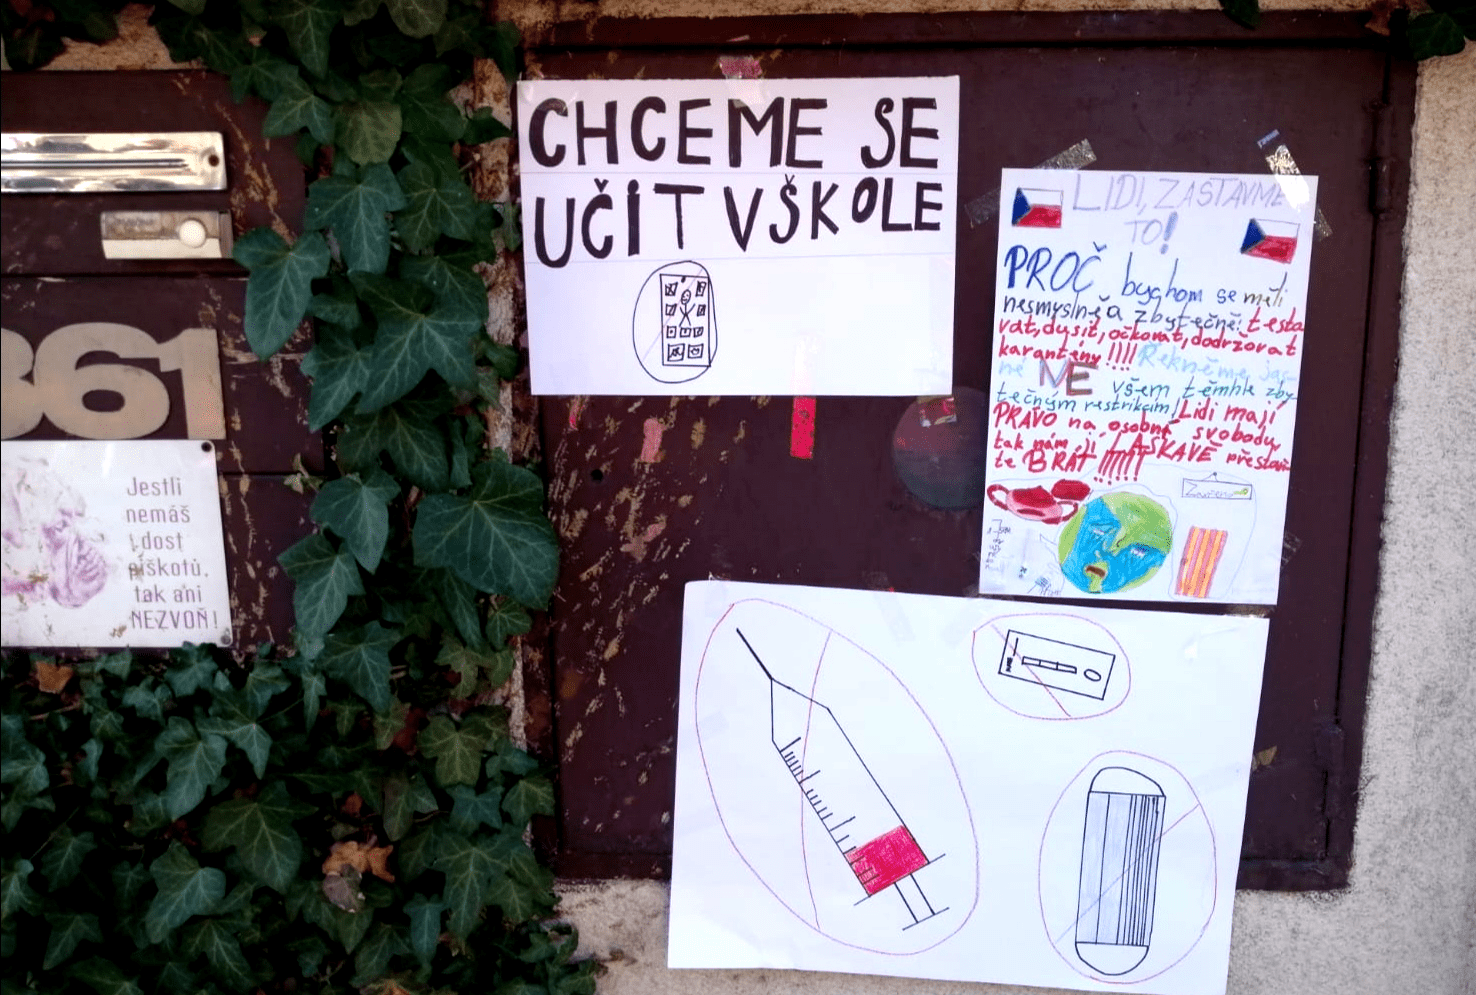 361
Jestli
nemáš
dost
piškotů,
tak ani
NEZVOŇ!
CHCEME SE
UČIT V ŠKOLE
LIDI, ZASTAVME
TO!
PROČ bychom se měli
nesmyslně a zbytečně: testo
vat, dusit, očkovat, dodržovat
karantény!!!! Řekněme jas-
ně NE všem těmhle zby-
tečným restrikcím! Lidi mají
PRÁVO na osobní svobodu,
tak nám ji LASKAVĚ přestaň
te BRÁT!!!!!!